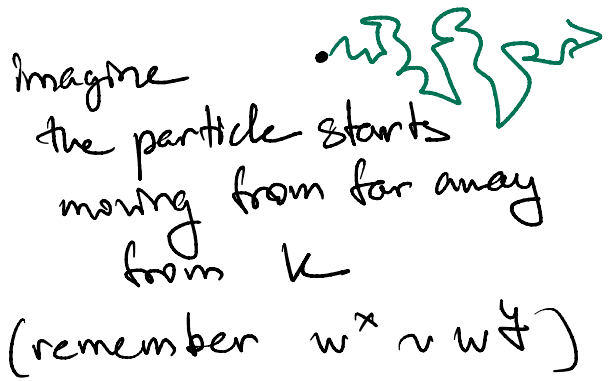 imagine
the particle starts
moving from far away
from K
(remember w^x ~ w^y)